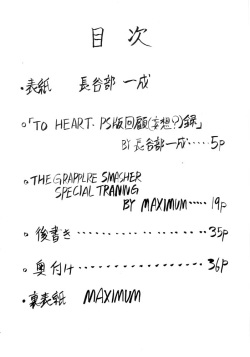 目次
・表紙 長谷部 一成
○「TO HEART・PS版回顧(妄想?)録」
BY 長谷部一成・・・・・5p
○THE GRAPPLRE SMASHER
SPECIAL TRANING
BY MAXIMUM・・・・・19p
○ 後書き・・・・・・・・・・・・・・35p
○ 奥付け・・・・・・・・・・・・・・36p
・裏表紙 MAXIMUM